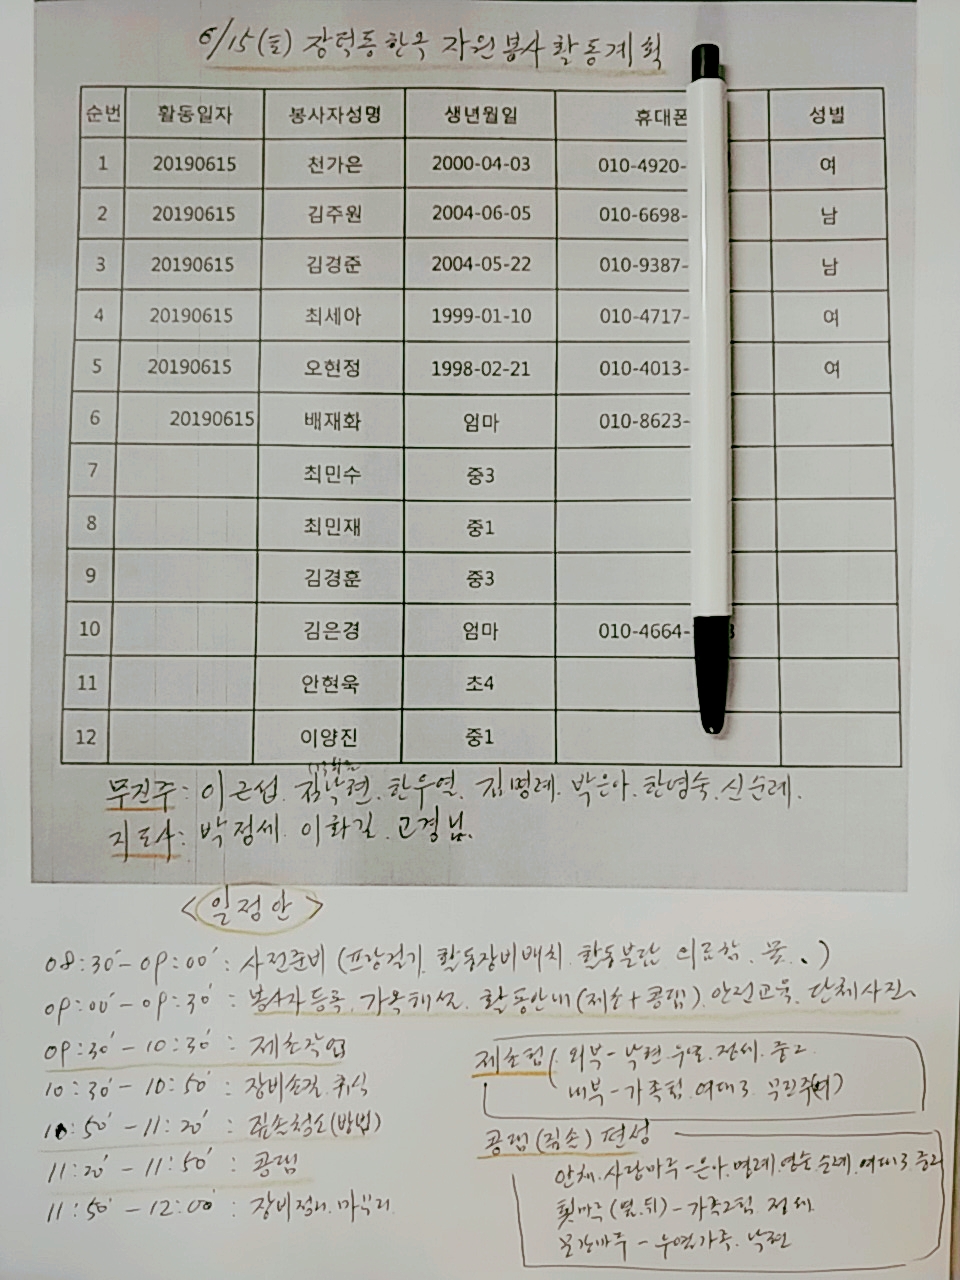 6/15(토) 장덕동한옥 자원봉사활동계획
순번 활동일자 봉사자성명 생년월일 휴대폰 성별
1 20190615 천가은 2000-04-03 010-4920- 여
2 20190615 김주원 2004-06-05 010-6698- 남
3 20190615 김경준 2004-05-22 010-9387- 남
4 20190615 최세아 1999-01-10 010-4717- 여
5 20190615 오현정 1998-02-21 010-4013- 여
6 20190615 배재화 엄마 010-8623-
7 최민수 중3
8 최민재 중1
9 김경훈 중3
10 김은경 엄마 010-4664-
11 안현욱 초4
12 이양진 중1
무진주: 이근섭. 김낙현. 한우열. 김명례. 박은아. 한영숙. 신순례.
지도사: 박정세. 이화길. 고경님.
<일정안>
08:30′-09:00′: 사전준비 (프랑걸기. 활동장비배치. 활동분담. 의료함. 물..)
09:00′-09:30′: 봉사자등록. 가옥해설. 활동안내(제초+콩댐). 안전교육. 단체사진
09:30′-10:30′: 제초작업
10:30′-10:50′: 장비손질. 휴식
10:50′-11:20′: 집안청소(방법)
11:20′-11:50′: 콩댐
11:50′-12:00′: 장비정리. 마무리.
제초팀 ( 외부-낙현. 우열. 정세. 중2
내부-가족팀. 여대3. 무진주(여)
콩댐( ) 편성
안채. 사랑마루-은아. 명례. 영숙. 순례. 여대3. 중2
툇마루(옆.뒤)-가족2팀. 정세.
문간마루-우열가족. 낙현